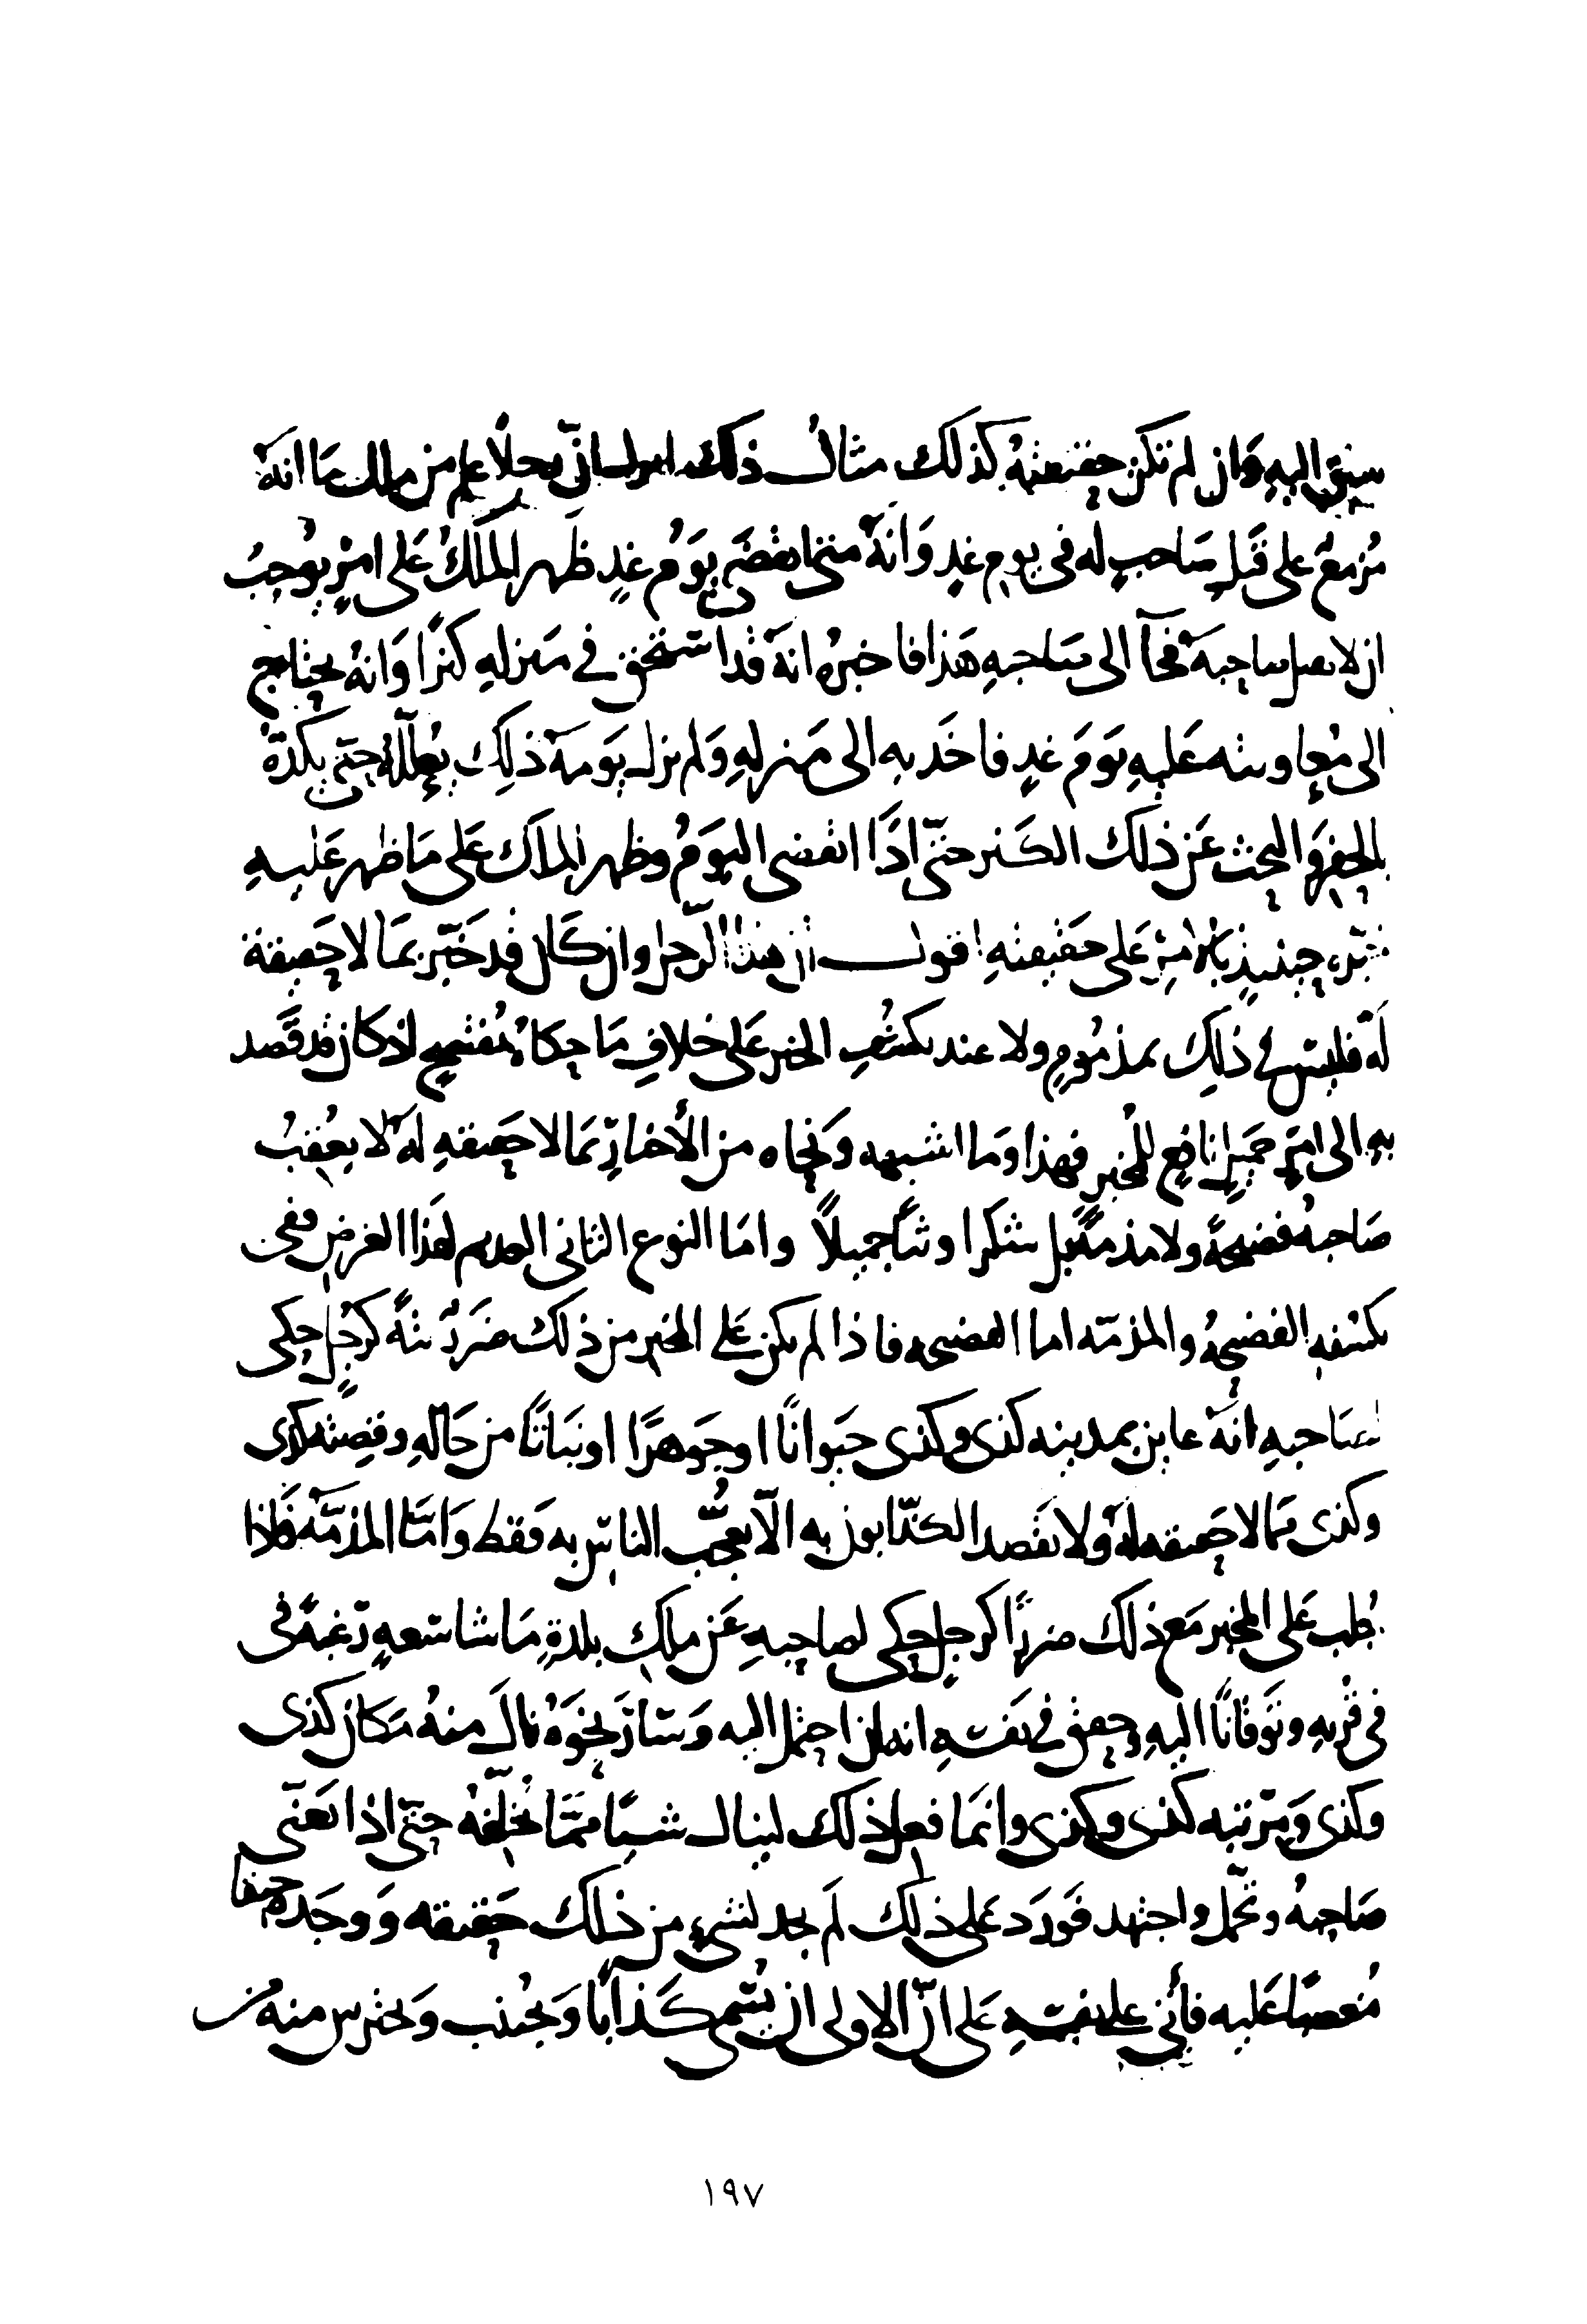 سيق اليه وان لم تكن حقيقته كذلك مثال ذلك لو ان رجلاً علم من ملك ما انه
مُزمعٌ على قتل صاحبٍ له في يوم غدٍ وَانّه متى انقضى يَوْمُ غدٍ ظهر الملكُ على امرٍ يوجبُ
ان لا يقتل صاحبه فجآ الى صاحبهِ هذا فاخبرهُ انه قد استحق في منزلهِ كنزًا وَانهُ يحتاج
الى مُعاونته عَليهِ يومَ غدٍ فاخَذ به الى منزلهِ وَلم يزل يَومَهُ ذلِك يُعلّله حتى يكدّهُ
بالحفر والبحث عَن ذلك الكنز حتّى اذا انقضى اليَومُ وظهر الملك على مَا ظهر عَليهِ
خبّره حينئذٍ بالامر على حقيقتهِ اقول ان هذا الرّجل وان كان قد خَبّر بمَا لا حَقيقة
لَه فليس في ذلِك بمذمُومٍ ولا عند تكشُّفِ الخبر على خلافِ مَا حكاهُ بمُفتضحٍ اذ كان قد قَصد
بهِ الى امرٍ جميلٍ نافعٍ للمُخبر فهذا وما اشبهه ونحاه من الأخبار بمَا لا حَقيقه لهُ لا يعُقبُ
صَاحبهُ فضيحةً ولا مذمةً بل شكرا وثنآ جميلاً واما النوع الثاني العديم لهذا الغرض ففى
تكشفهِ الفضيحهُ والمذمّه اما الفضيحه فاذا لم يكن على المخبر من ذلك ضَررٌ بتةً كرجُلٍ حكى
لصَاحبهِ انّه عاين بمدينه كذى وكذى حيَوانًا او جَوهرًا او نبَاتًا من حَالهِ وقصته كذى
وكذى ممّا لا حَقيقه له وَلا يقصد الكذّابون به الّا تعجّب الناس به فقط وَامّا المذمّه فاذا
جُلب عَلى المخبر مَع ذلك ضررًا كرجلٍ حكى لصاحبهِ عَن ملك بلدةٍ مَا شاسعهٍ رَغبةً فى
فى قربهِ وتَوقانًا اليهِ وحقق في نفسهِ انه ان احتمل اليه وَسار نحوَهُ نال منهُ مكان كذى
وكذى وَمرتبه كذى وكذى وانما فعل ذلك لينال شيئًا ممّا يُخلّفه حتّى اذا تَعنّى
صَاحبهُ وتحمّل واجتهد فوَرَد على ذلك لَم يجد لشيءٍ من ذلك حَقيقه وَوجَده حنقا
مُغضبًا عَليه فأتى على نفسهِ على انّ الاولى ان يُسمى كذابًا وَيجُتنب وَيحترس منه مَن
١٩٧